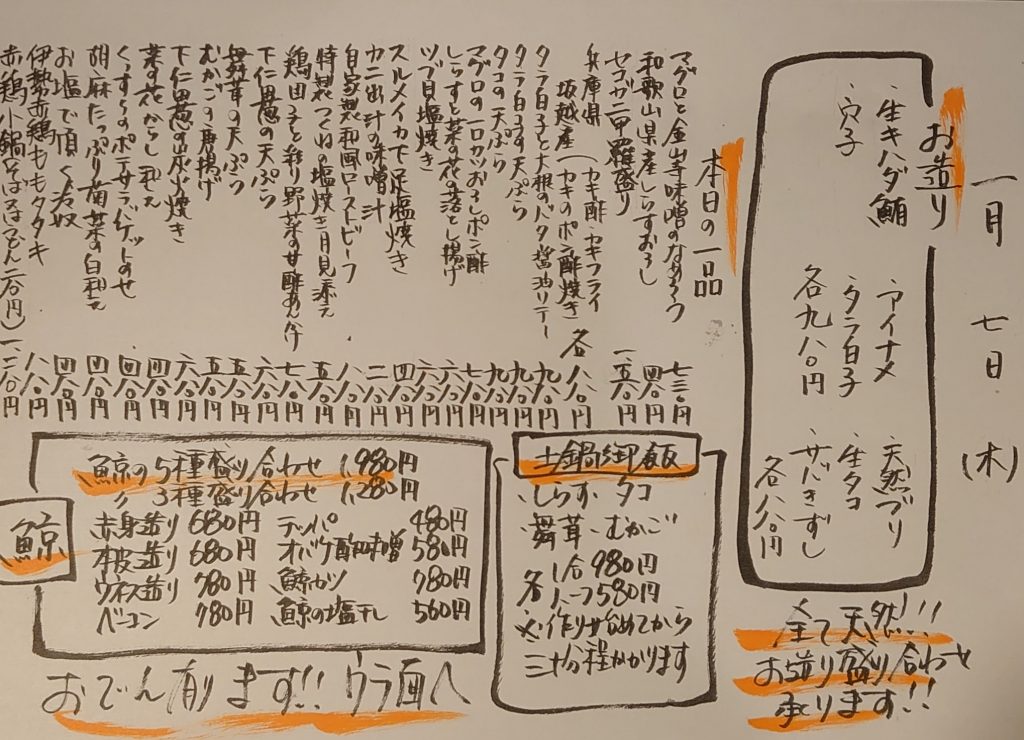 一月七日(木)
お造り
・生キハダ鮪 ・アイナメ ・天然ブリ
・穴子 ・タラ白子 ・生タコ
各九八〇円 ・サバきずし
各八八〇円
全て天然!!
お造り盛り合わせ
承ります!!
本日の一品
マグロと金山寺味噌のなめろう 七三〇円
和歌山県産しらすおろし 四八〇円
セコガニ甲羅盛り 一、五八〇円
兵庫県坂越産(カキ酢・カキフライ
カキのポン酢焼き 各八八〇円
タラ白子と大根のバタ醤油ソテー 九八〇円
タラ白子の天ぷら 九八〇円
タコの天ぷら 九八〇円
マグロの一口カツおろしポン酢 七八〇円
しらすと菜の花の落とし揚げ 六八〇円
ツブ貝塩焼き 六八〇円
スルメイカ下足塩焼き 四八〇円
カニ出汁の味噌汁 二八〇円
自家製和風ローストビーフ 八八〇円
特製つくねの塩焼き月見添え 五八〇円
鶏団子と彩り野菜の甘酢あん 七八〇円
下仁田葱の天ぷら 六八〇円
舞茸の天ぷら 五八〇円
むかごの唐揚げ 五八〇円
下仁田葱の炭火焼き 六八〇円
菜の花からし和え 四八〇円
くっすらのポテサラバゲットのせ 四八〇円
胡麻たっぷり菊菜の白和え 四八〇円
お塩で頂く冷奴 四八〇円
伊勢赤鶏ももタタキ 八八〇円
赤鶏小鍋(そば又はうどん 円) 円
土鍋御飯
・しらす・タコ
・舞茸・むかご
各 一合980円
一人つ580円
※作り始めてから
三十分程かかります
鯨
鯨の5種盛り合わせ 1,980円
〃 3種盛り合わせ 1,280円
赤身造り 680円 テッパ 480円
本皮造り 680円 オバケ酢味噌 580円
ウネス造り 780円 鯨カツ 780円
ベーコン 780円 鯨の塩干し 560円
おでん有ります!! ウラ面へ